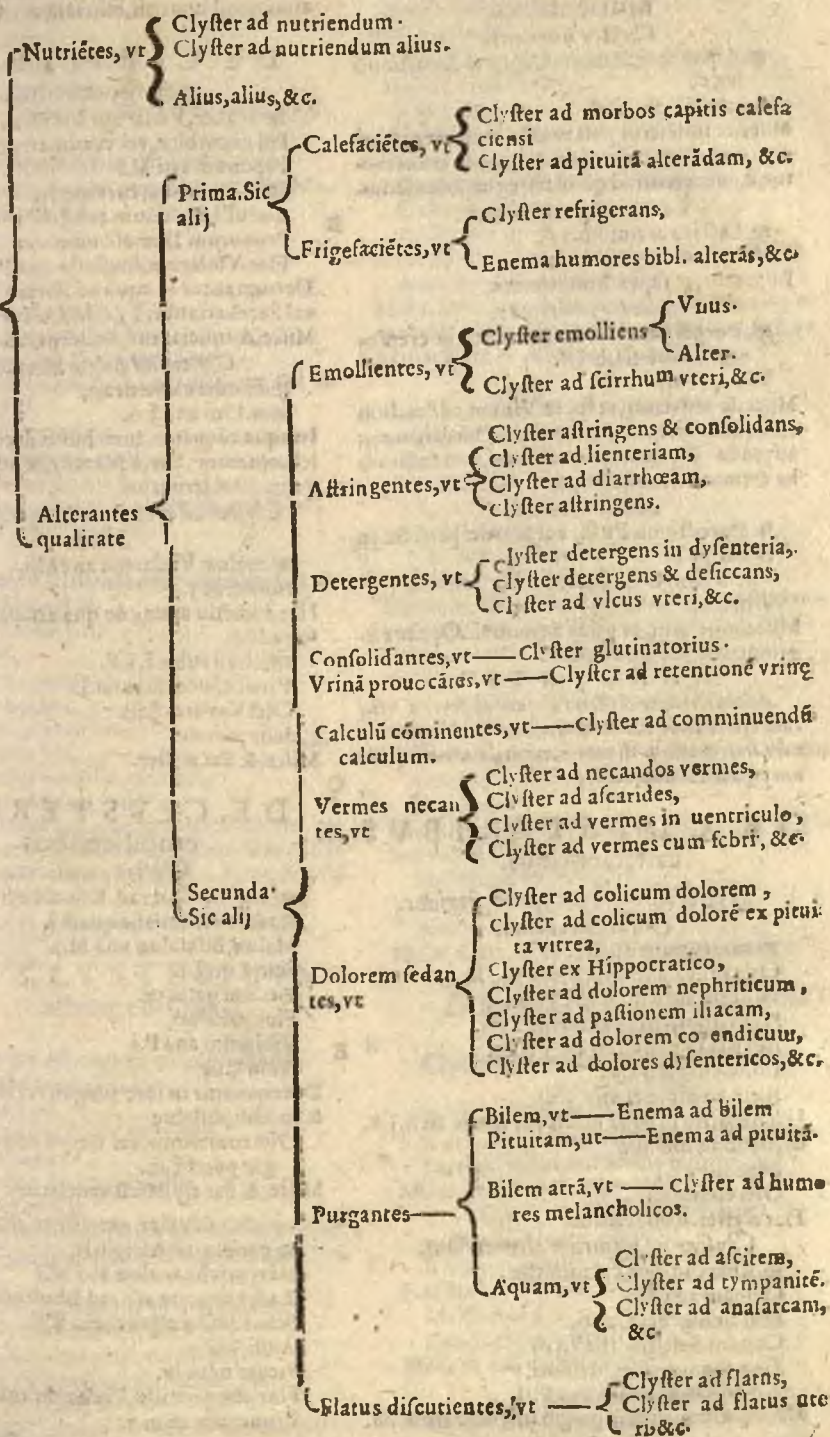 Nutriẽtes, vt
Clyſter ad nutriendum.
Clyſter ad nutriendum alius.
Alius, alius, &c.
Alterantes
qualitate
Prima. Sic
alij
Calefaciẽtes, vt
Clyſter ad morbos capitis calefa
ciensi
Clyſter ad pituitã alterãdam, &c.
Frigefaciẽtes, vt
Clyſter refrigerans,
Enema humores bibl. alterãs, &c.
Secunda.
Sic alij
Emollientes, vt
Clyſter emolliens
Vnus.
Alter.
Clyſter ad ſcirrhum vteri, &c.
Aſtringentes, vt
Clyſter aſtringens & conſolidans,
Clyſter ad lienteriam,
Clyſter ad diarrhœam,
Clyſter aſtringens.
Detergentes, vt
lyſter detergens in dyſenteria,
Clyſter detergens & deſiccans,
Cl ſter ad vlcus vteri, &c.
Conſolidantes, vt Clyſter glutinatorius.
Vrinã prouocãtes, vt Clyſter ad retentionẽ vrinę
Calculũ cõminentes, vt Clyſter ad comminuendũ
calculum.
Vermes necan
tes, vt
Clyſter ad necandos vermes,
Clyſter ad aſcarides,
Clyſter ad vermes in uentriculo,
Clyſter ad vermes cum febri, &c.
Dolorem ſedan
tes, vt
Clyſter ad colicum dolorem,
Clyſter ad colicum dolorẽ ex pitui
ta vitrea,
Clyſter ex Hippocratico,
Clyſter ad dolorem nephriticum,
Clyſter ad paſſionem iliacam,
Clyſter ad dolorem co endicum,
Clyſter ad dolores dyſentericos, &c.
Purgantes
Bilem, vt Enema ad bilem
Pituitam, ut Enema ad pituitã.
Bilem atrã, vt Clyſter ad humo
res melancholicos.
Aquam, vt
Clyſter ad aſcitem,
Clyſter ad tympanitẽ.
Clyſter ad anaſarcam,
&c.
Flatus diſcutientes, vt
Clyſter ad flatus,
Clyſter ad flatus ute
ri, &c.